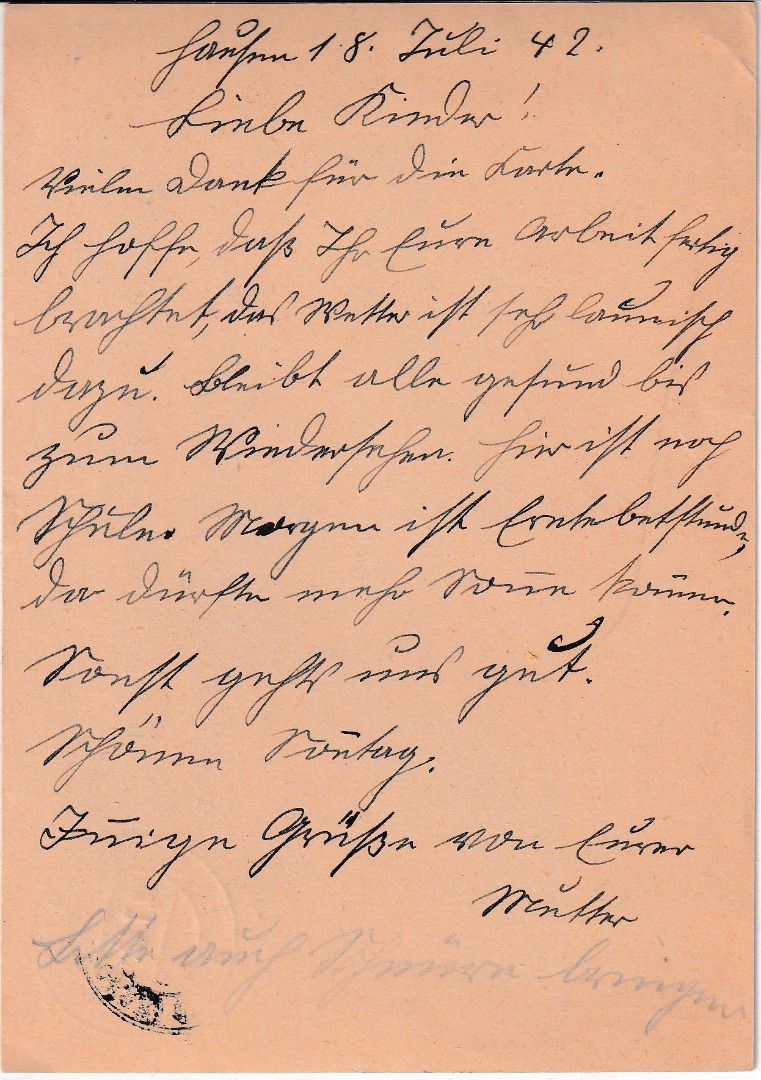 Hausen 18. Juli 42.
Liebe Kinder!
Vielen Dank für die Karte.
Ich hoffe, daß Ihr Eure Arbeit fertig
brachtet, das Wetter ist sehr launisch
dazu. Bleibt alle gesund bis
zum Wiedersehen. Hier ist noch
Schule. Morgen ist Erntebetstunde,
da dürfte mehr Sonne kommen.
Sonst gehts uns gut.
Schönen Sonntag.
Innige Grüße von Eurer
Mutter
Bitte auch Schnüre bringen